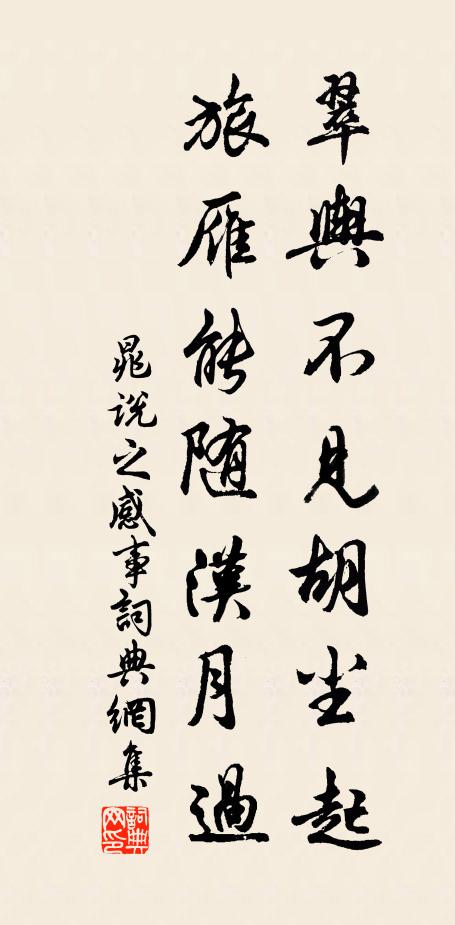 翠輿不見胡尘起
旅雁能随漢月過
晁说之感事詞典網集
詞典网印